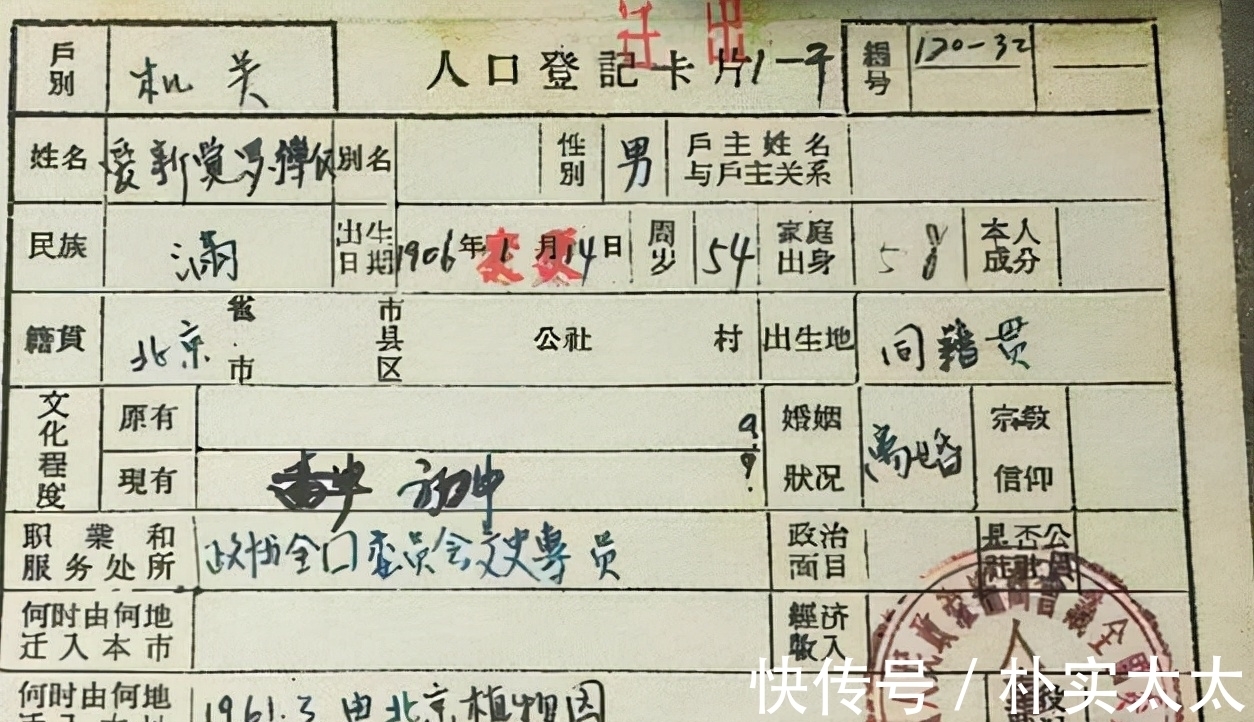 迁出
戶別 机关 人口登記卡片1-平 編号 120-32
姓名 爱新觉罗溥仪 別名 性別 男 戶主姓名与戶主关系
民族 满 出生日期 1906年1月14日 变更 周岁 54 家庭出身 58 本人成分
籍貫 北京 省市 市县区 公社 村 出生地 同籍贯
文化程度 原有 婚姻狀况 离婚 宗敎信仰
現有 初中
职業和服务处所 政协全囗委员会文史專员 政治面目 是否公社社員
何时由何地迁入本市 經济收入
何时由何地 1961.3 由北京植物园
快传号 / 朴实太太